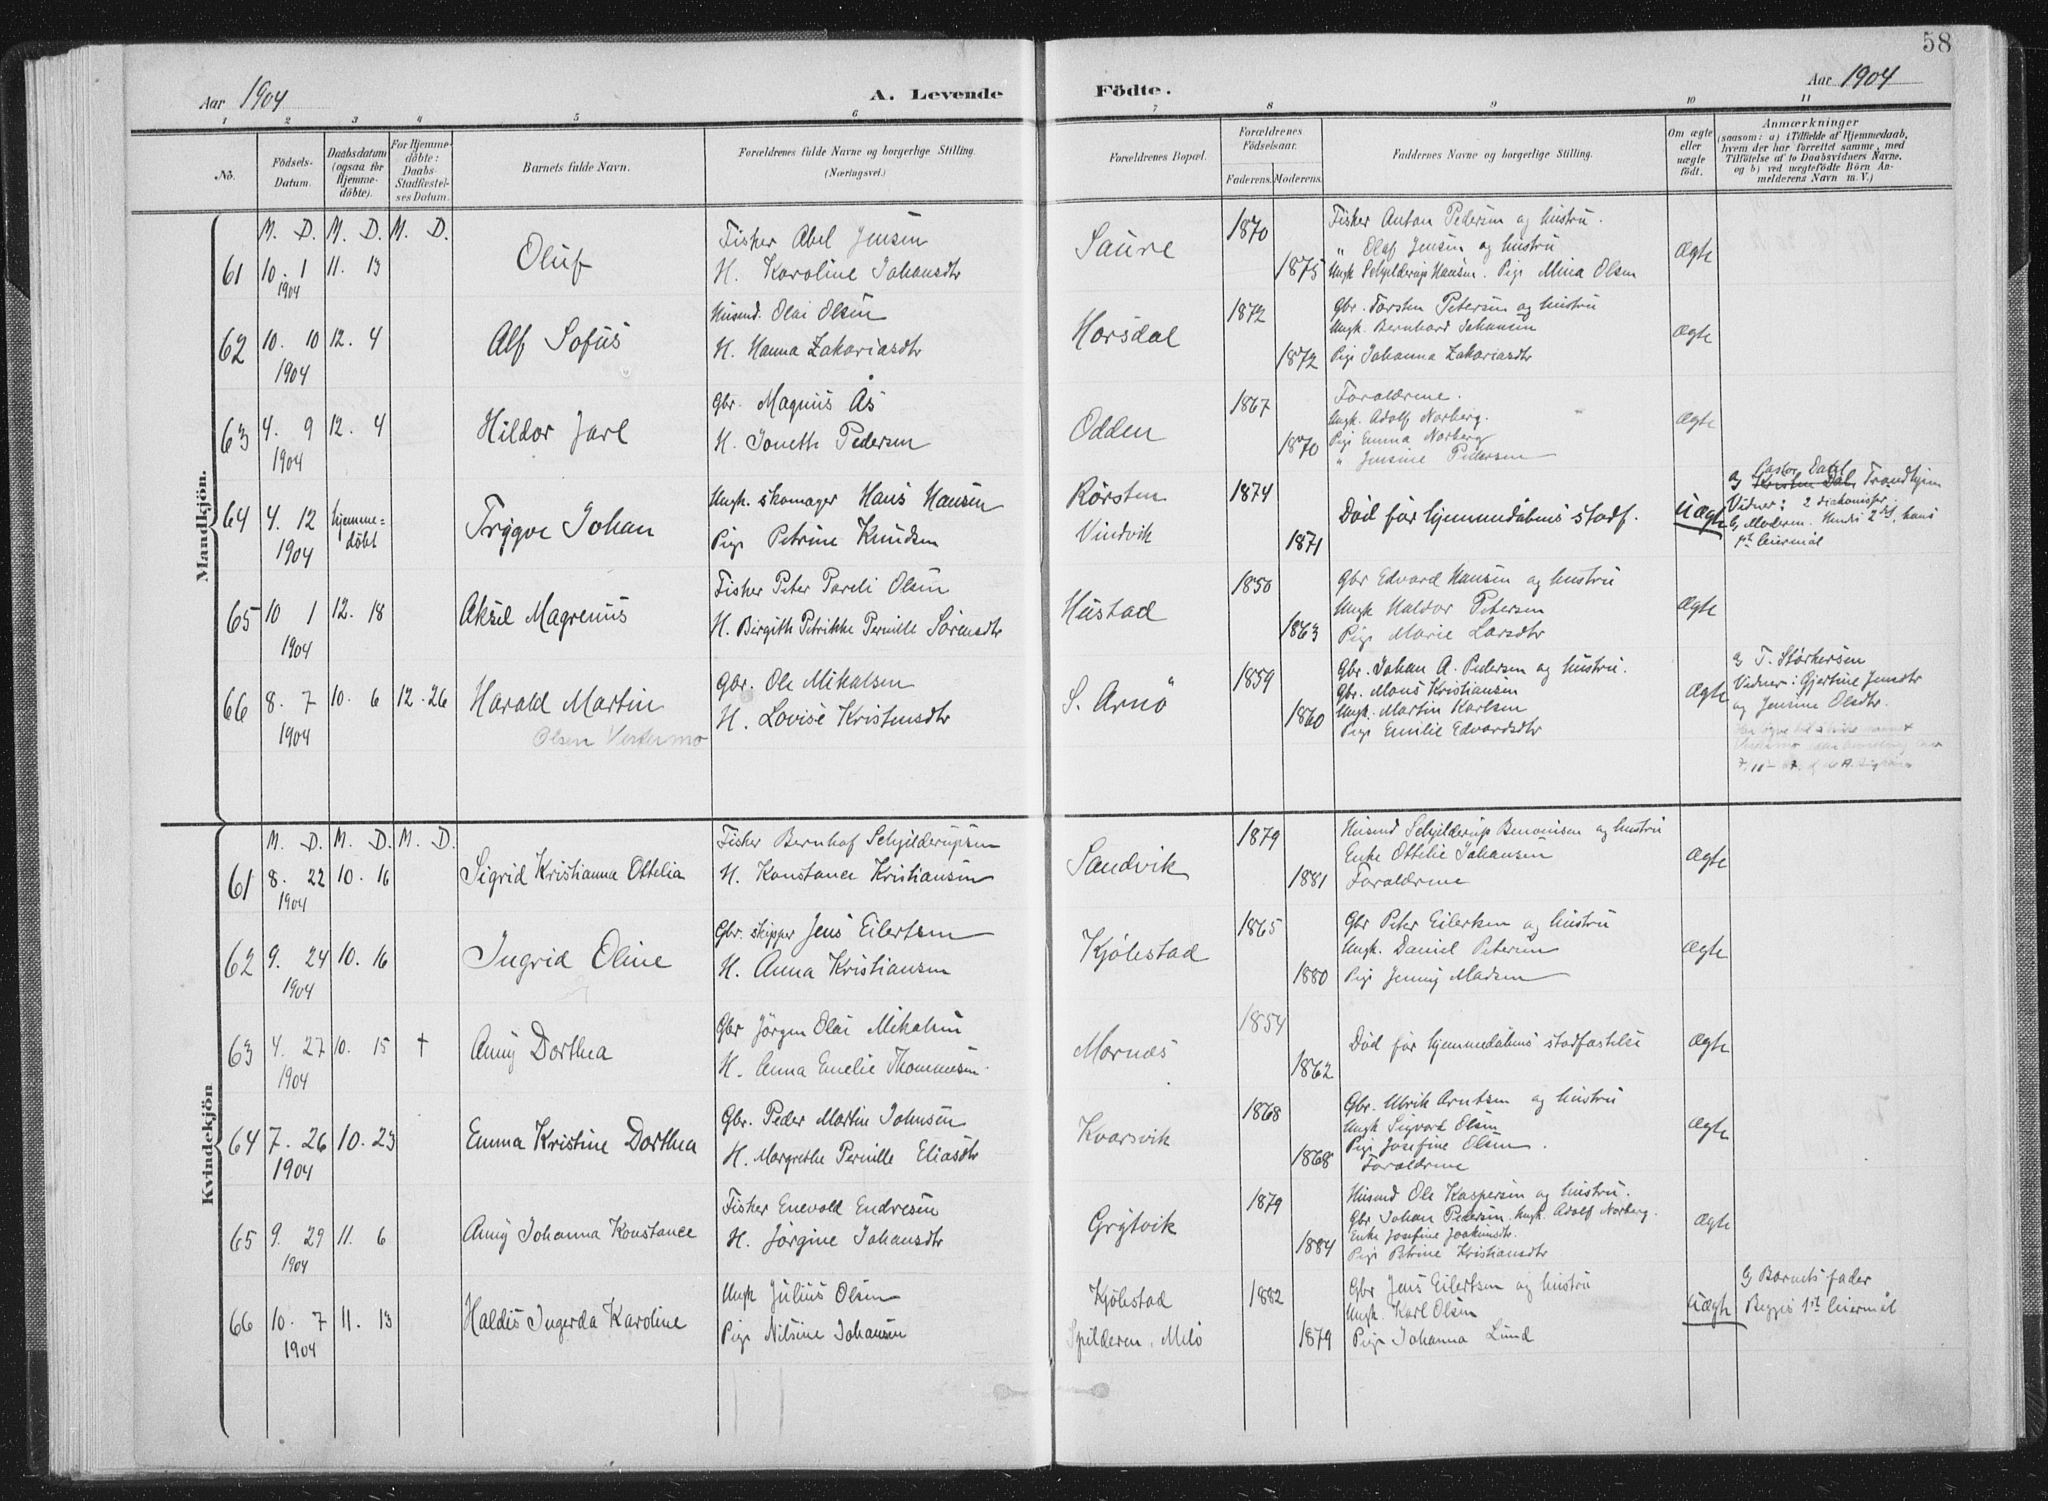 58
Aar 1904
A. Levende Födte.
Aar 1904
1 2 3 4 5 6 7 8 9 10 11
No.
Födsels-
Datum.
Daabsdatum
(ogsaa for
Hjemme-
döbte).
For Hjemme-
döbte:
Daabs-
Stadfæstel-
ses Datum.
Barnets fulde Navn.
Forældrenes fulde Navne og borgerlige Stilling.
(Næringsvei.)
Forældrenes Bopæl.
Forældrenes
Födselsaar.
Faderens. Moderens.
Faddernes Navne og borgerlige Stilling.
Om ægte
eller
uægte
födt.
Anmærkninger
(saasom: a) i Tilfælde af Hjemmedaab,
hvem der har forrettet samme, med
Tilföielse af to Daabsvidners Navne,
og b) ved uægtefödte Börn An-
melderens Navn m. V.)
Mandkjön.
M. D. M. D. M. D.
61 10. 1 1904 11. 13 Oluf
Fisker Abel Jensen
H. Karoline Johansdtr
Saure 1870 1875
Fisker Anton Pedersen og hustru.
" Olaf Jensen og hustru
Ungk Schjelderup Hansen. Pige Mina Olsen
Ægte
62 10. 10 1904 12. 4 Alf Sofus
Husmd. Olai Olsen
H. Hanna Zakariasdtr
Horsdal 1872 1872
Gbr. Torsten Petersen og hustru
Ungk. Bernhard Johansen
Pige Johanna Zakariasdtr
Ægte
63 4. 9 1904 12. 4 Hildor Jarl
Gbr. Magnus Ås
H. Jonette Pedersen
Odden 1867 1870
Forældrene.
Ungk. Adolf Norberg.
Pige Emma Norberg
" Jensine Pedersen
Ægte
64 4. 12 1904 hjemme=
döbt
Trygve Johan
Ungk. skomager Hans Hansen
Pige Petrine Knudsen
Rörsten
Vindvik
1874 1871
Död før hjemmedåbens stadf.
Uægte
a) Pastor Dahl Trondhjem
Vidner: 2 diakonisser
b) Moderen. Hendes 2det, hans
1st leiermål
65 10 1 1904 12. 18 Aksel Magrenus
Fisker Peter Pareli Olsen
H. Birgith Petrikke Pernille Sörensdtr
Hustad 1850 1863
Gbr Edvard Hansen og hustru
Ungk Haldor Petersen
Pige Marie Larsdtr
Ægte
66 8. 7 1904 10. 6 12. 26 Harald Martin
Olsen Vestermo
Gbr. Ole Mikalsen
H. Lovise Kristensdtr
S. Arnö 1859 1860
Gbr. Johan A. Pedersen og hustru.
Gbr. Mons Kristiansen
Ungk. Martin Karlsen
Pige Emilie Edvardsdtr
Ægte
a) T. Størkersen
Vidner: Gjertine Jensdtr
og Jensine Olsdtr.
Kvindekjön
M. D. M. D. M. D.
61 8. 22 1904 10. 16 Sigrid Kristianna Ottelia
Fisker Bernhof Schjelderupsen
H. Konstance Kristiansen
Sandvik 1879 1881
Husmd Schjelderup Benonisen og hustru
Enke Ottelie Johansen
Forældrene
Ægte
62 9. 24 1904 10. 16 Ingrid Oline
Gbr. skipper Jens Eilertsen
H. Anna Kristiansen
Kjölestad 1865 1880
Gbr Peter Eilertsen og hustru
Ungk. Daniel Petersen
Pige Jenny Madsen
Ægte
63 4. 27 1904 10. 15 † Anny Dorthea
Gbr Jörgen Olai Mikalsen
H. Anna Emelie Thommesen
Mornes 1854 1862
Död før hjemmedåbens stadfæstelse
Ægte
64 7. 26 1904 10. 23 Emma Kristine Dorthea
Gbr. Peder Martin Johnsen
H. Margrethe Pernille Eliasdtr
Kvarsvik 1868 1868
Gbr. Ulrik Arntsen og hustru
Ungk Sigvart Olsen
Pige Josefine Olsen.
Forældrene
Ægte
65 9. 29 1904 11. 6 Anny Johanna Konstance
Fisker Enevold Endresen
H. Jörgine Johansdtr
Grytvik 1879 1884
Husmd Ole Kaspersen og hustru.
Gbr Johan Pedersen. Ungk. Adolf Norberg.
Enke Josefine Joakimsdtr.
Pige Petrine Kristiansdtr
Ægte
66 10. 7 1904 11. 13 Haldis Ingerda Karoline
Ungk Julius Olsen
Pige Nilsine Johansen
Kjölestad
Spilderen, Melö
1882 1879
Gbr Jens Eilertsen og hustru
Ungk. Karl Olsen
Pige Johanna Lund
Uægte
b) Barnets fader
Begges 1st leiermål